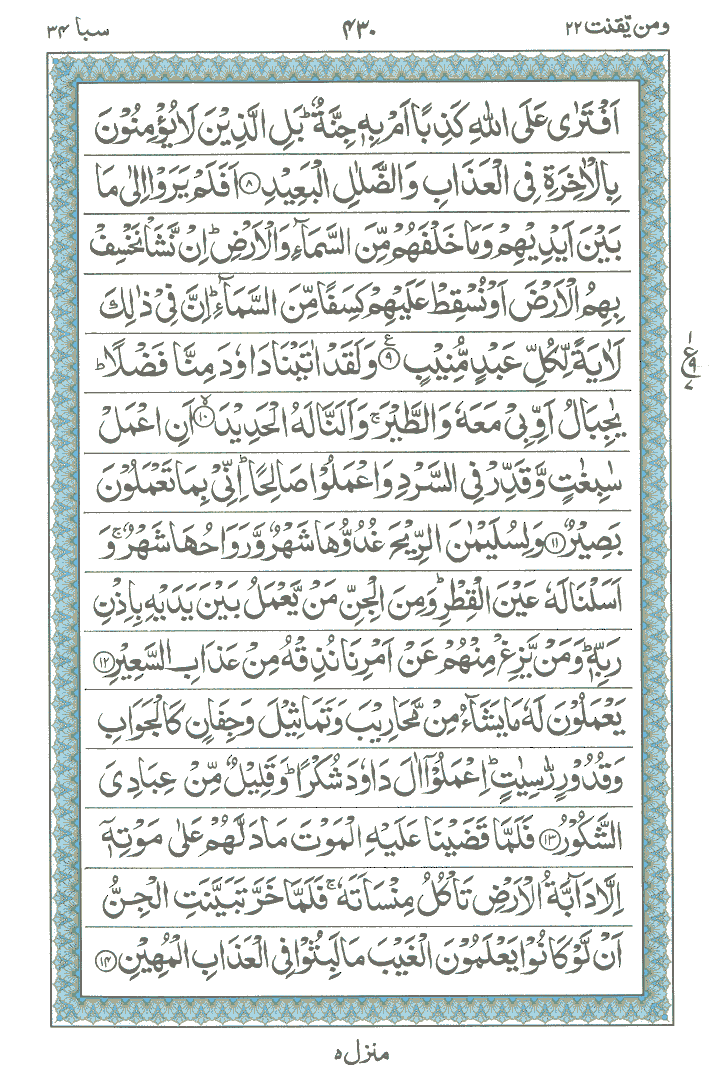 ومن یّقنت ۲۲ ۴۳۰ سبا ۳۴
اَفْتَرٰى عَلَى اللّٰهِ كَذِبًا اَمْ بِهٖ جِنَّةٌ ؕ بَلِ الَّذِيْنَ لَا يُؤْمِنُوْنَ
بِالْاٰخِرَةِ فِى الْعَذَابِ وَالضَّلٰلِ الْبَعِيْدِ ۝۸ اَفَلَمْ يَرَوْا اِلٰى مَا
بَيْنَ اَيْدِيْهِمْ وَمَا خَلْفَهُمْ مِّنَ السَّمَآءِ وَالْاَرْضِ ؕ اِنْ نَّشَاْ نَخْسِفْ
بِهِمُ الْاَرْضَ اَوْ نُسْقِطْ عَلَيْهِمْ كِسَفًا مِّنَ السَّمَآءِ ؕ اِنَّ فِىْ ذٰلِكَ
لَاٰيَةً لِّكُلِّ عَبْدٍ مُّنِيْبٍ ۝۹ ع وَلَقَدْ اٰتَيْنَا دَاوٗدَ مِنَّا فَضْلًا ؕ
يٰجِبَالُ اَوِّبِىْ مَعَهٗ وَالطَّيْرَ ۚ وَاَلَنَّا لَهُ الْحَدِيْدَ ۝۱۰ۙ اَنِ اعْمَلْ
سٰبِغٰتٍ وَّقَدِّرْ فِى السَّرْدِ وَاعْمَلُوْا صَالِحًا ؕ اِنِّىْ بِمَا تَعْمَلُوْنَ
بَصِيْرٌ ۝۱۱ وَلِسُلَيْمٰنَ الرِّيْحَ غُدُوُّهَا شَهْرٌ وَّرَوَاحُهَا شَهْرٌ ۚ وَ
اَسَلْنَا لَهٗ عَيْنَ الْقِطْرِ ؕ وَمِنَ الْجِنِّ مَنْ يَّعْمَلُ بَيْنَ يَدَيْهِ بِاِذْنِ
رَبِّهٖ ؕ وَمَنْ يَّزِغْ مِنْهُمْ عَنْ اَمْرِنَا نُذِقْهُ مِنْ عَذَابِ السَّعِيْرِ ۝۱۲
يَعْمَلُوْنَ لَهٗ مَا يَشَآءُ مِنْ مَّحَارِيْبَ وَتَمَاثِيْلَ وَجِفَانٍ كَالْجَوَابِ
وَقُدُوْرٍ رّٰسِيٰتٍ ؕ اِعْمَلُوْٓا اٰلَ دَاوٗدَ شُكْرًا ؕ وَقَلِيْلٌ مِّنْ عِبَادِىَ
الشَّكُوْرُ ۝۱۳ فَلَمَّا قَضَيْنَا عَلَيْهِ الْمَوْتَ مَا دَلَّهُمْ عَلٰى مَوْتِهٖٓ
اِلَّا دَآبَّةُ الْاَرْضِ تَاْكُلُ مِنْسَاَتَهٗ ۚ فَلَمَّا خَرَّ تَبَيَّنَتِ الْجِنُّ
اَنْ لَّوْ كَانُوْا يَعْلَمُوْنَ الْغَيْبَ مَا لَبِثُوْا فِى الْعَذَابِ الْمُهِيْنِ ۝۱۴
۱
ع ۹
۷
منزل ۵